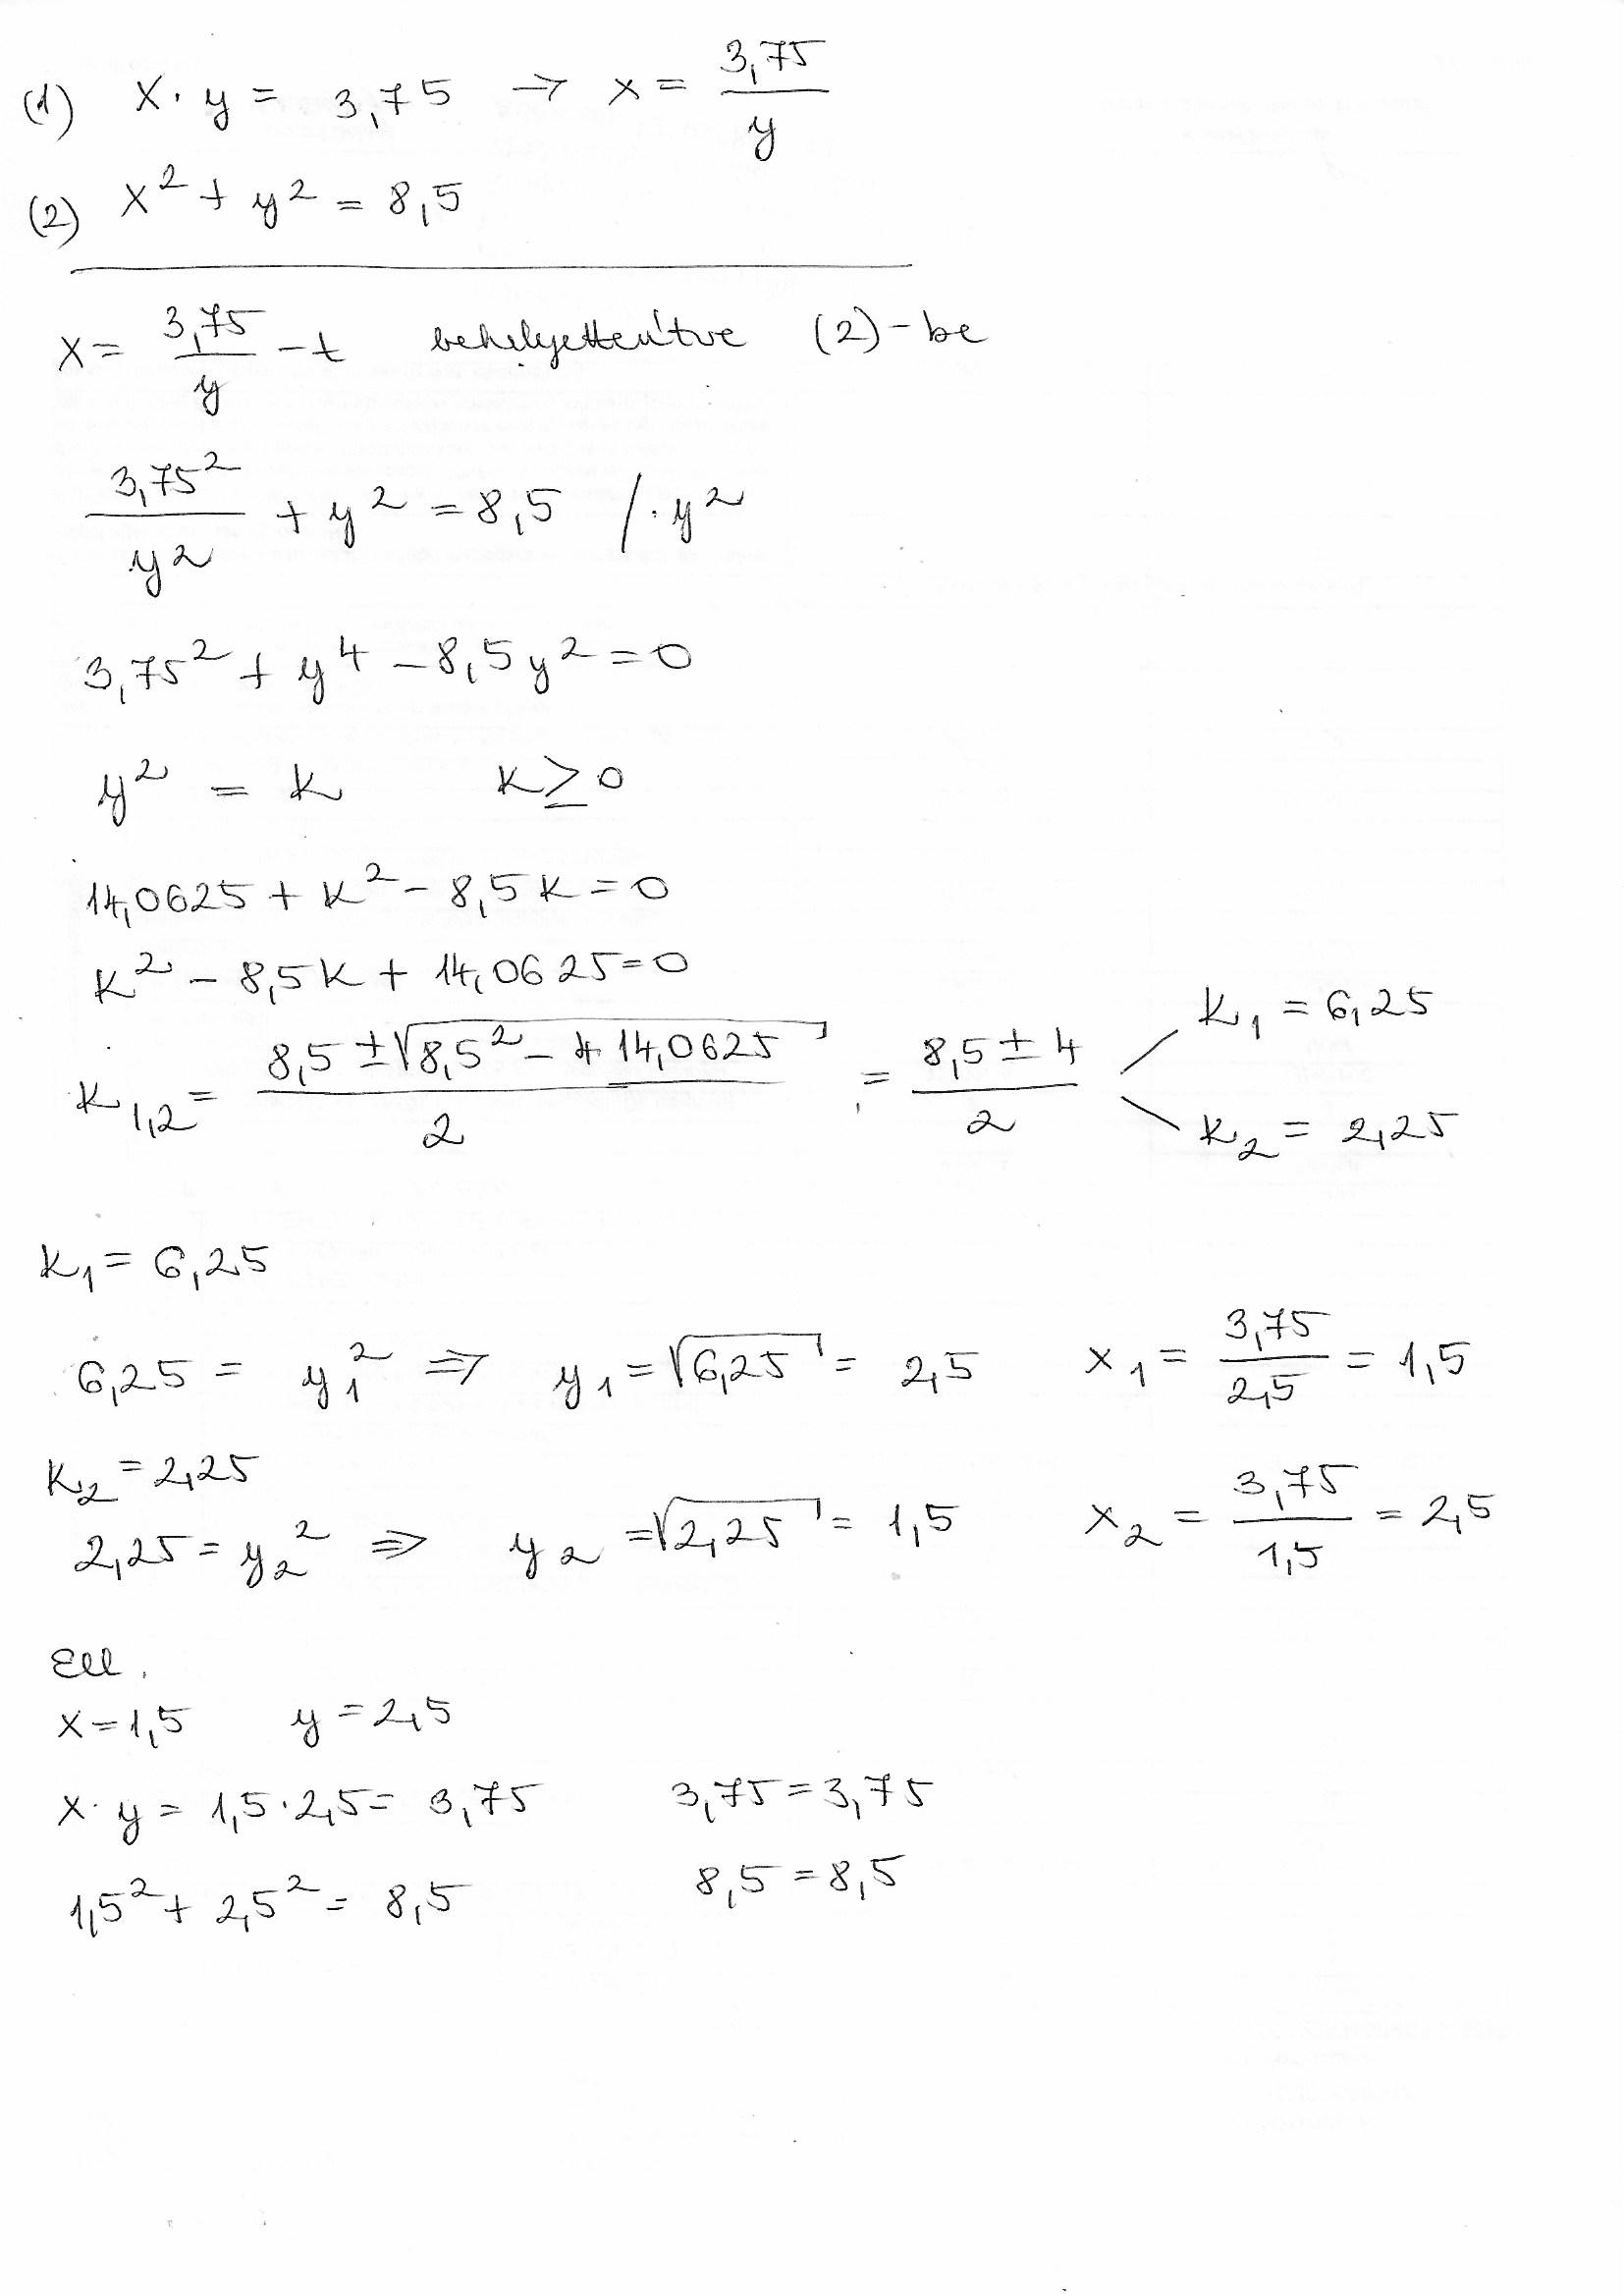 (1) x · y = 3,75 → x = 3,75 / y
(2) x² + y² = 8,5
x = 3,75 / y -t behelyettesítve (2)-be
3,75² / y² + y² = 8,5 /·y²
3,75² + y⁴ - 8,5y² = 0
y² = k k ≥ 0
14,0625 + k² - 8,5k = 0
k² - 8,5k + 14,0625 = 0
k₁,₂ = (8,5 ± √(8,5² - 4·14,0625)) / 2 = (8,5 ± 4) / 2
k₁ = 6,25
k₂ = 2,25
k₁ = 6,25
6,25 = y₁² ⇒ y₁ = √6,25 = 2,5 x₁ = 3,75 / 2,5 = 1,5
k₂ = 2,25
2,25 = y₂² ⇒ y₂ = √2,25 = 1,5 x₂ = 3,75 / 1,5 = 2,5
Ell.
x = 1,5 y = 2,5
x · y = 1,5 · 2,5 = 3,75 3,75 = 3,75
1,5² + 2,5² = 8,5 8,5 = 8,5